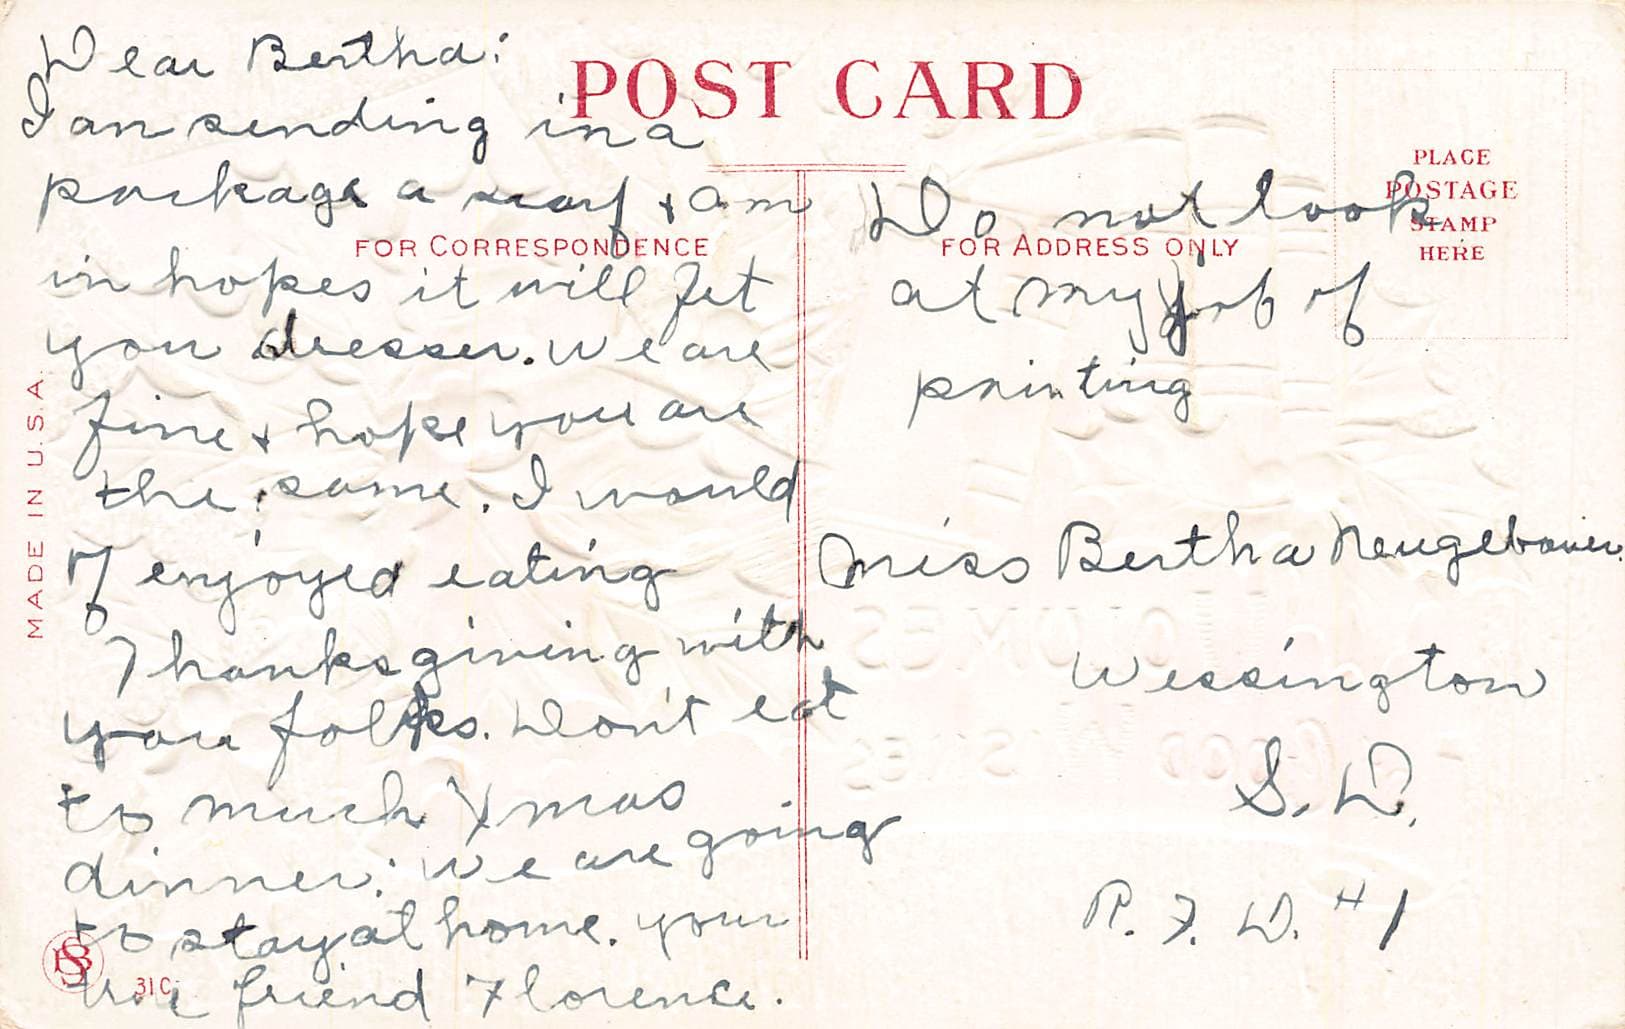 Dear Bertha:
I am sending in a
package a scarf & am
in hopes it will fit
your dresser. We are
fine & hope you are
the same. I would
of enjoyed eating
Thanksgiving with
you folks. Don't eat
to much Xmas
dinner. We are going
to stay at home. your
true friend Florence.
POST CARD
FOR CORRESPONDENCE
FOR ADDRESS ONLY
PLACE
POSTAGE
STAMP
HERE
Do not look
at my job of
painting
Miss Bertha Neugebauer
Wessington
S. D.
R. F. D. #1
MADE IN U.S.A.
31C